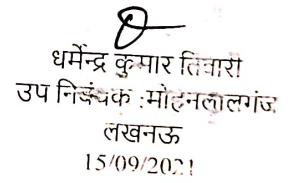 धर्मेन्द्र कुमार तिवारी
उप निबंधक :मोहनलालगंज
लखनऊ
15/09/2021